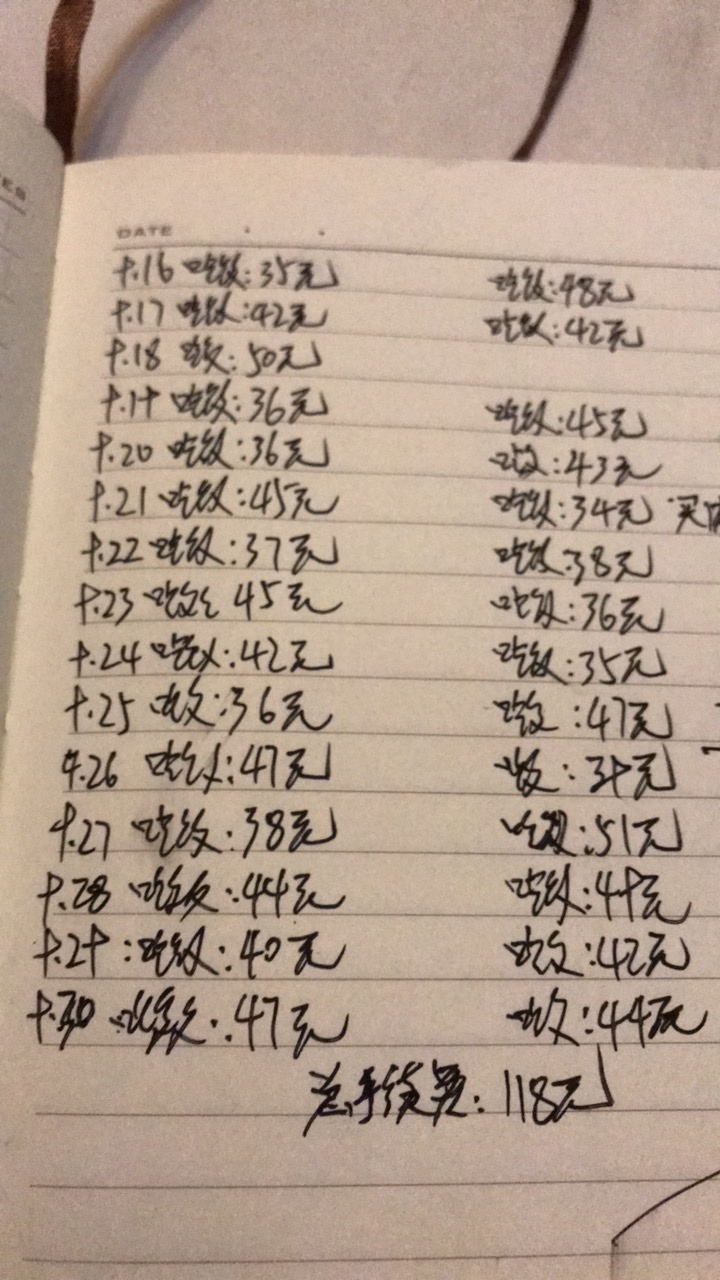 DATE
9.16 吃饭:35元 吃饭:48元
9.17 吃饭:42元 吃饭:42元
9.18 吃饭:50元
9.19 吃饭:36元 吃饭:45元
9.20 吃饭:36元 吃饭:43元
9.21 吃饭:45元 吃饭:34元 买
9.22 吃饭:37元 吃饭:38元
9.23 吃饭: 45元 吃饭:36元
9.24 吃饭:42元 吃饭:35元
9.25 吃饭:36元 吃饭:47元
9.26 吃饭:47元 吃饭:39元
9.27 吃饭:38元 吃饭:51元
9.28 吃饭:44元 吃饭:49元
9.29:吃饭:40元 吃饭:42元
9.30 吃饭:47元 吃饭:44元
总手续费:118元